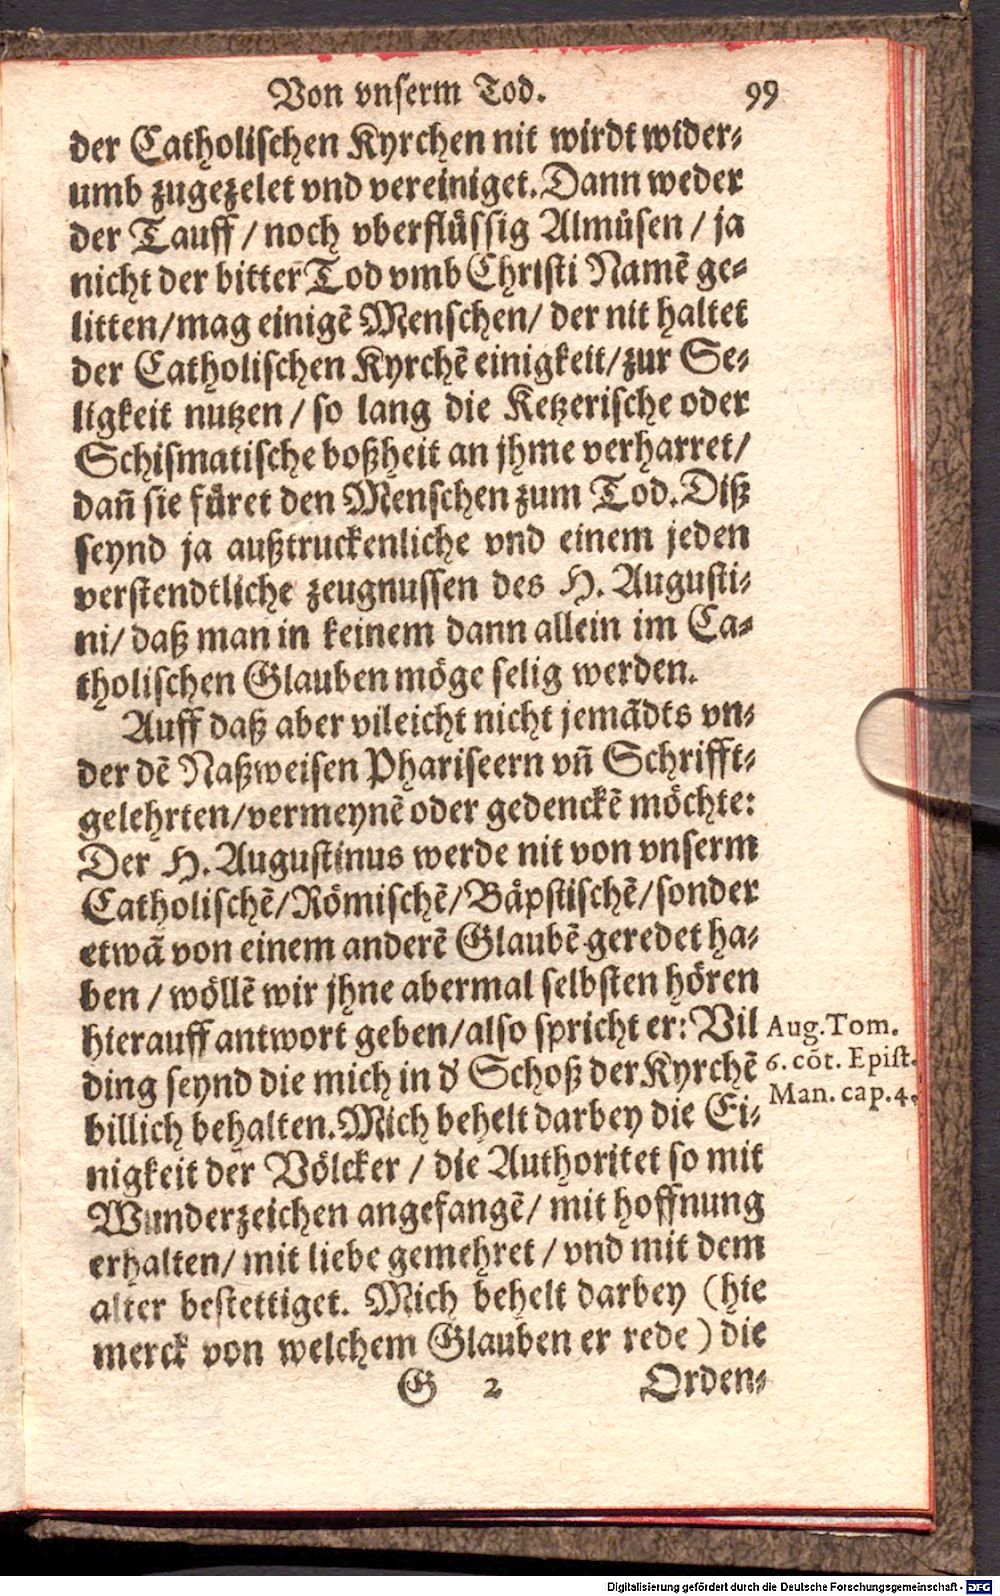 Von vnserm Tod. 99
der Catholischen Kyrchen nit wirdt wider-
umb zugezelet vnd vereiniget. Dann weder
der Tauff / noch vberflüssig Almůsen / ja
nicht der bitter Tod vmb Christi Namẽ ge-
litten/mag einigẽ Menschen/ der nit haltet
der Catholischen Kyrchẽ einigkeit/zur Se-
ligkeit nutzen / so lang die Ketzerische oder
Schismatische boßheit an jhme verharret/
dañ sie füret den Menschen zum Tod. Diß
seynd ja außtruckenliche vnd einem jeden
verstendtliche zeugnussen des H. Augusti-
ni/ daß man in keinem dann allein im Ca-
tholischen Glauben möge selig werden.
Auff daß aber vileicht nicht jemãdts vn-
der dẽ Naßweisen Phariseern vñ Schrifft-
gelehrten/vermeynẽ oder gedenckẽ möchte:
Der H. Augustinus werde nit von vnserm
Catholischẽ/Römischẽ/Bäpstischẽ/sonder
etwã von einem anderẽ Glaubẽ geredet ha-
ben / wöllẽ wir jhne abermal selbsten hören
hierauff antwort geben/also spricht er: Vil
ding seynd die mich in d' Schoß der Kyrchẽ
billich behalten. Mich behelt darbey die Ei-
nigkeit der Völcker / die Authoritet so mit
Wunderzeichen angefangẽ/ mit hoffnung
erhalten/ mit liebe gemehret / vnd mit dem
alter bestettiget. Mich behelt darbey (hie
merck von welchem Glauben er rede) die
G 2 Orden-
Aug. Tom.
6. cõt. Epist.
Man. cap. 4.
Digitalisierung gefördert durch die Deutsche Forschungsgemeinschaft - DFG